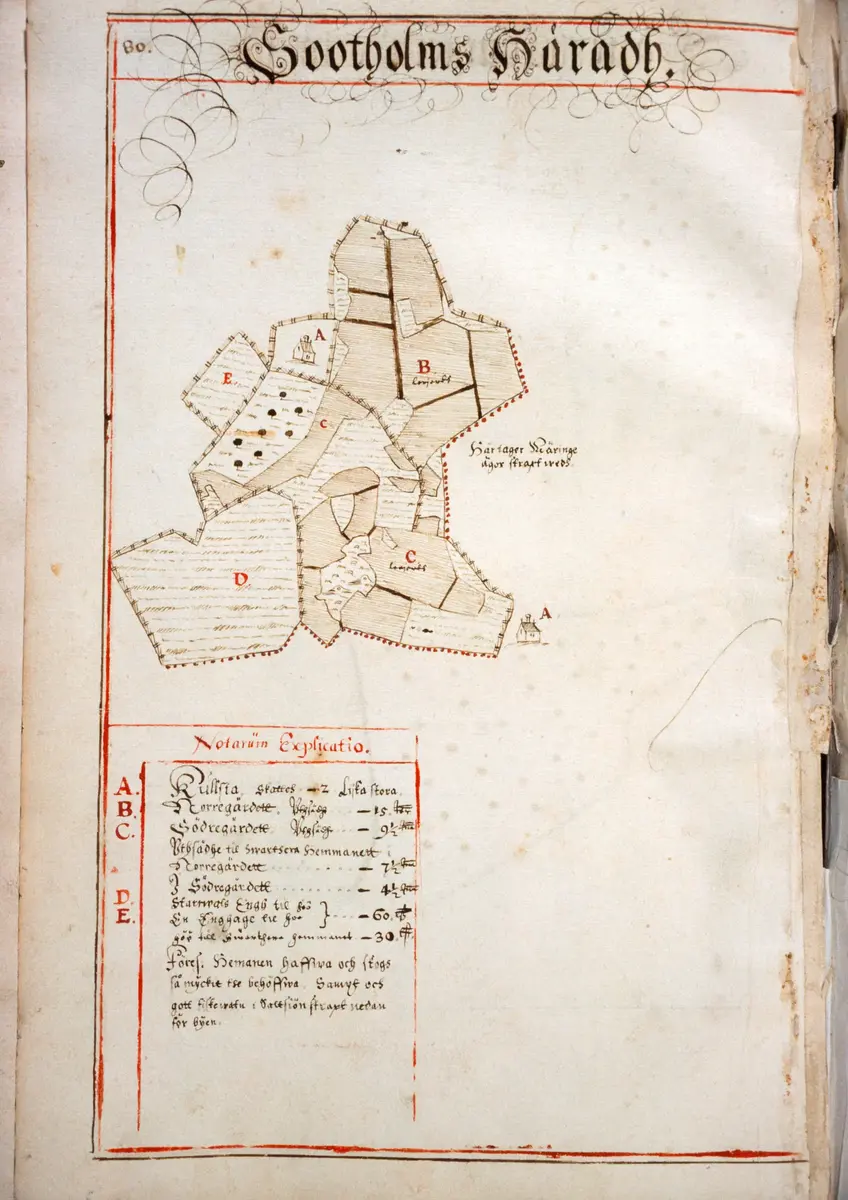 80.
Sootholms Häradh.
A
E
B
Lerjordh
C
Här tager Näringe
ägor strapt weds.
C
Lerjordh
D
A
Notarum Explicatio.
A. Kullsta, skattes — 2 lijka stora.
B. Norregärdett, Uthsädhe — 15
C. Södregärdett, Uthsädhe — 9½
Uthsädhe til hwartsera Hemmanett i
Norregärdett — 7½
I Södregärdett — 4½
D. Starrwals Engh til höö
E. En Enghage til höö — 60
gör till hwarthera hemmanet — 30
Föres. Hemanen haffwa och skogs
så myckit the behöffwa. Sampt och
gott fiskewatn i Saltsiön strapt nedan
för byen.